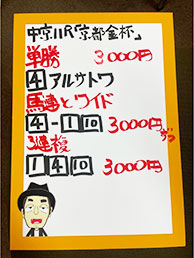 中京11R「京都金杯」
単勝 3000円
4 アルサトワ
馬連とワイド
4-1 10 3000円ずつ
3連複
1 4 10 3000円